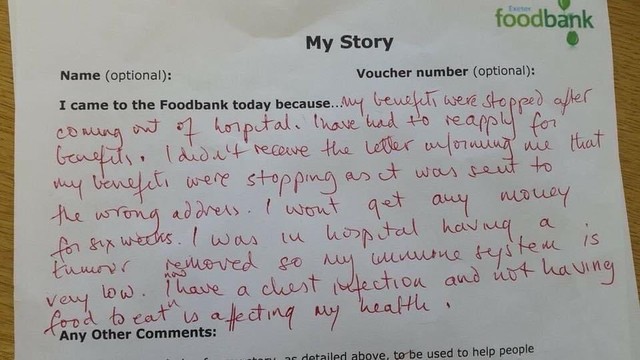 Exeter
foodbank
My Story
Name (optional):
Voucher number (optional):
I came to the Foodbank today because...My benefits were stopped after
coming out of hospital. I have had to reapply for
benefits. I didn't receive the letter informing me that
my benefits were stopping as it was sent to
the wrong address. I wont get any money
for six weeks. I was in hospital having a
tumour removed so my immune system is
very low. I now have a chest infection and not having
food to eat is affecting my health.
Any Other Comments:
story, as detailed above, to be used to help people